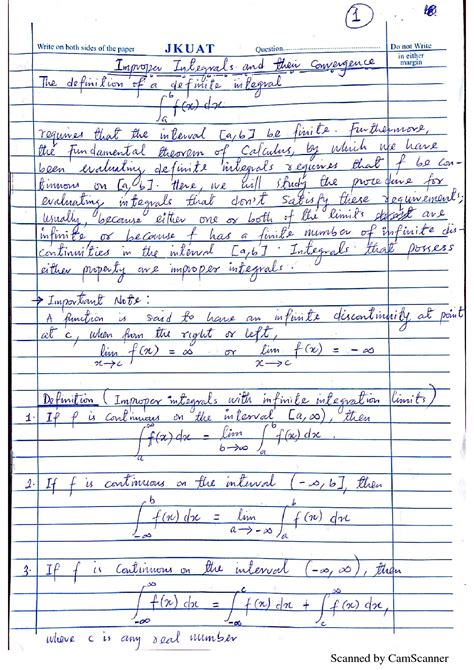 1
Write on both sides of the paper JKUAT Question Do not Write in either margin
Improper Integrals and their convergence
The definition of a definite integral
∫_a^b f(x) dx
requires that the interval [a,b] be finite. Furthermore,
the Fundamental theorem of Calculus, by which we have
been evaluating definite integrals requires that f be con-
tinuous on [a,b]. Here, we will study the procedure for
evaluating integrals that don't satisfy these requirements,
usually, because either one or both of the limits are
infinite or because f has a finite number of infinite dis-
continuities in the interval [a,b]. Integrals that possess
either property are improper integrals.
→ Important Note:
A function is said to have an infinite discontinuity at point
at c, when from the right or left,
lim_{x→c} f(x) = ∞ or lim_{x→c} f(x) = -∞
Definition (Improper integrals with infinite integration limits)
1. If f is continuous on the interval [a,∞), then
∫_a^∞ f(x) dx = lim_{b→∞} ∫_a^b f(x) dx.
2. If f is continuous on the interval (-∞, b], then
∫_{-∞}^b f(x) dx = lim_{a→-∞} ∫_a^b f(x) dx
3. If f is continuous on the interval (-∞, ∞), then
∫_{-∞}^∞ f(x) dx = ∫_{-∞}^c f(x) dx + ∫_c^∞ f(x) dx,
where c is any real number
Scanned by CamScanner